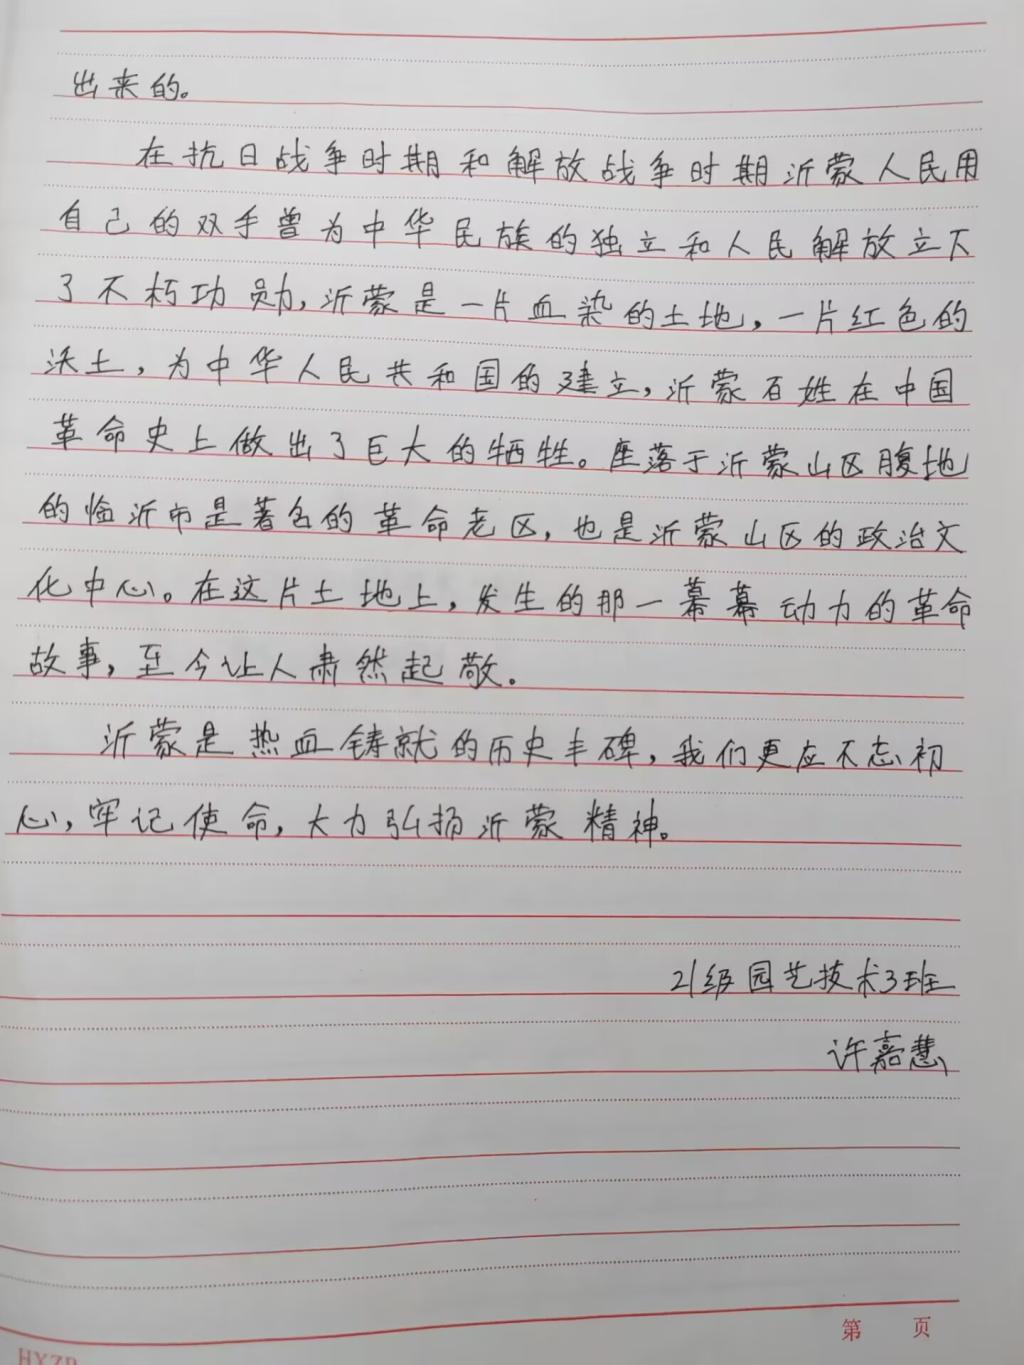 出来的。
在抗日战争时期和解放战争时期沂蒙人民用
自己的双手曾为中华民族的独立和人民解放立下
了不朽功勋,沂蒙是一片血染的土地,一片红色的
沃土,为中华人民共和国的建立,沂蒙百姓在中国
革命史上做出了巨大的牺牲。座落于沂蒙山区腹地
的临沂市是著名的革命老区,也是沂蒙山区的政治文
化中心。在这片土地上,发生的那一幕幕动力的革命
故事,至今让人肃然起敬。
沂蒙是热血铸就的历史丰碑,我们更应不忘初
心,牢记使命,大力弘扬沂蒙精神。
21级园艺技术3班
许嘉慧
第 页
HYZP